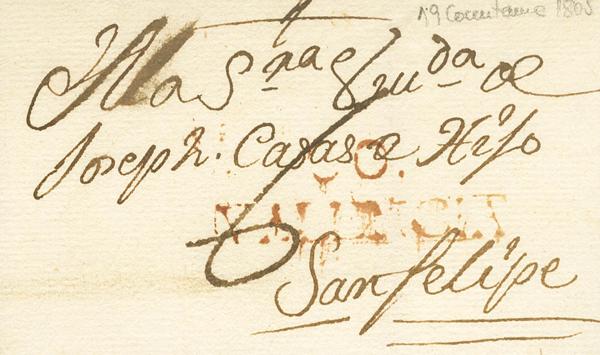 19 Cocentaina 1805
A la Sra Viuda de
Joseph. Casas e Hijo
VALENCIA
San felipe